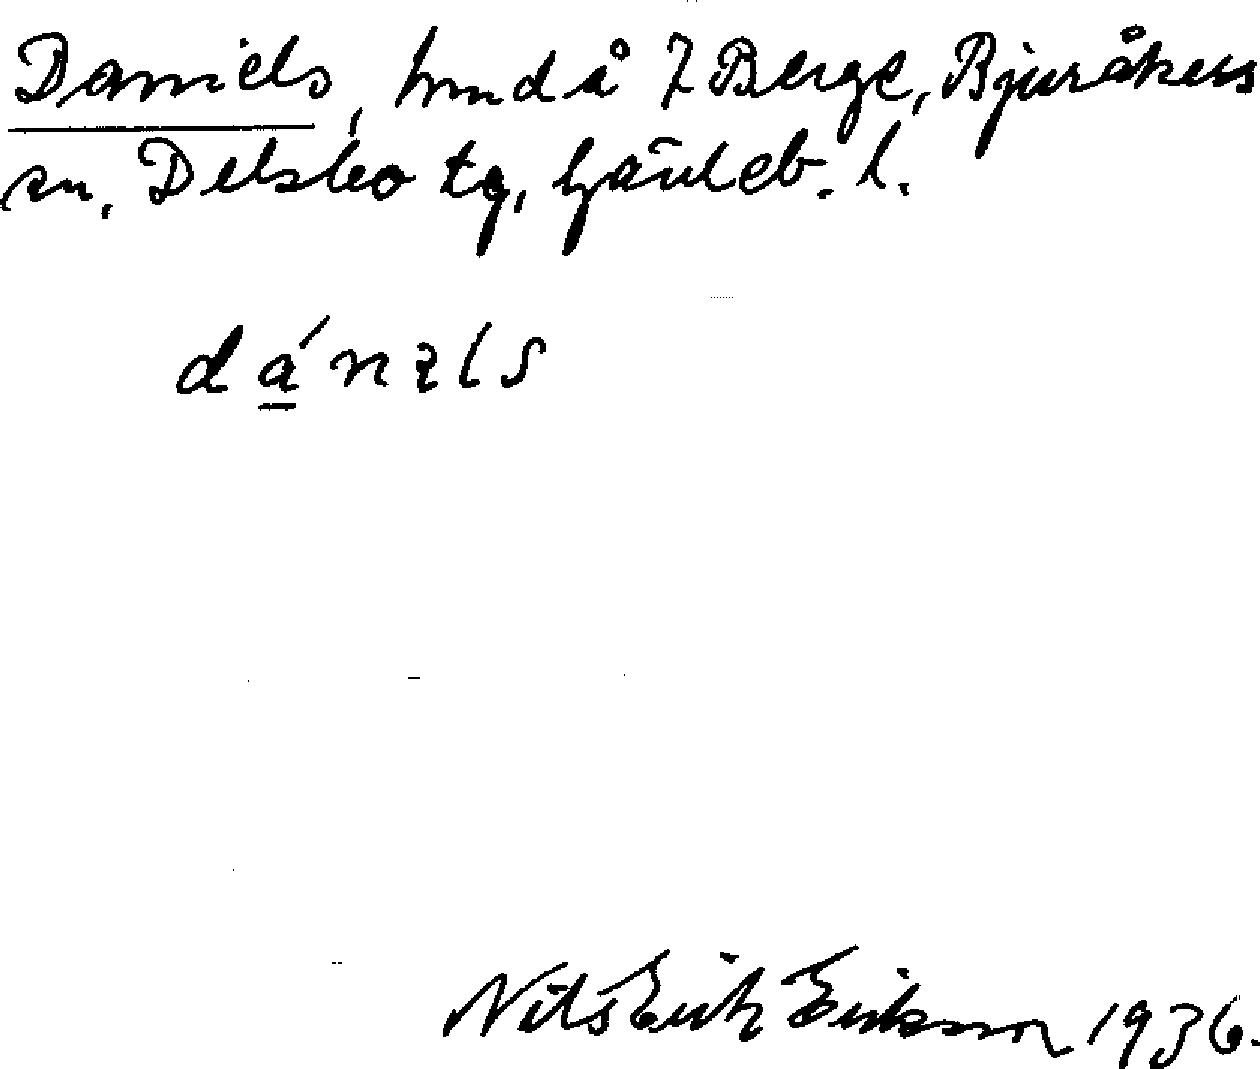 Daniels, hmd å 7 Berge, Bjuråkers
sn, Delsbo tg, Gävleb. l.
dá̱nɛls
Nils Erik Erikson 1936.